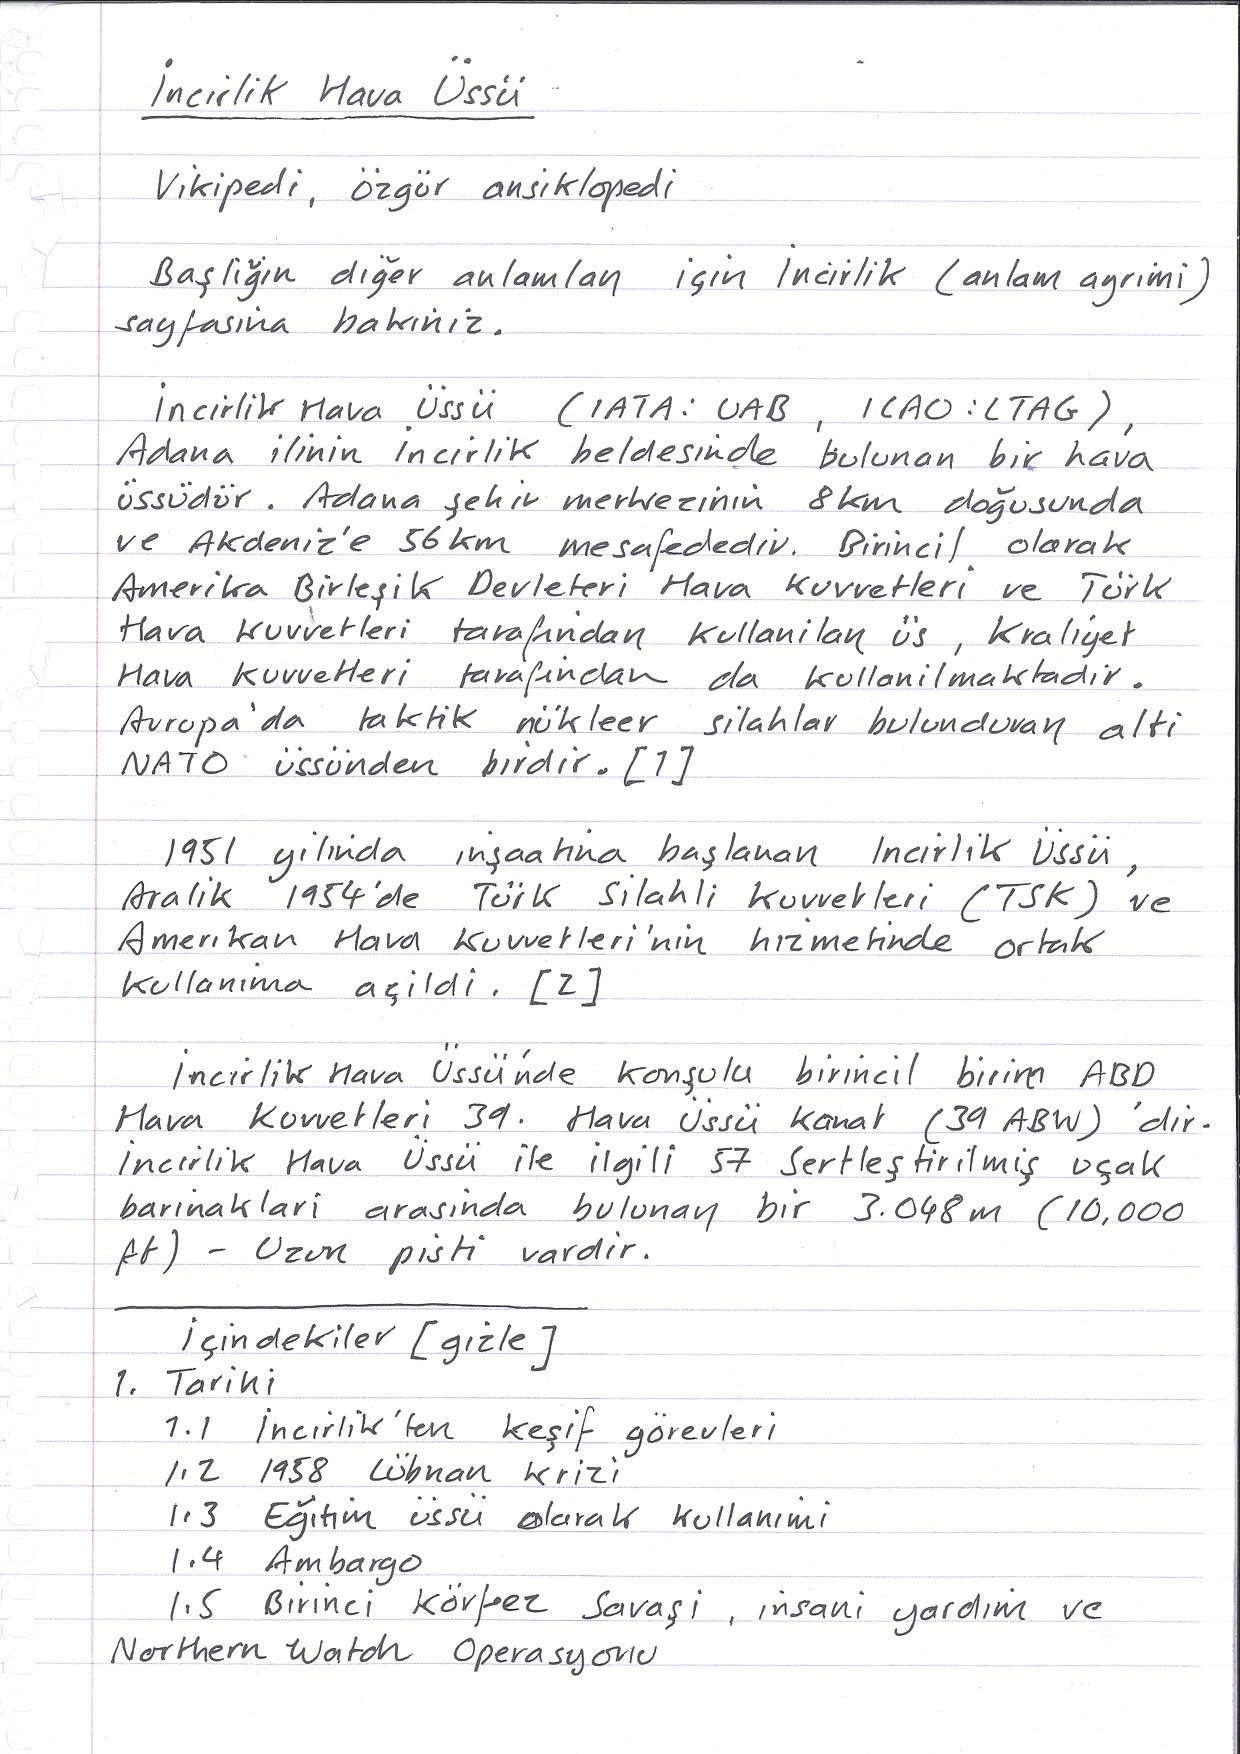 İncirlik Hava Üssü
Vikipedi, özgür ansiklopedi
Başliğin diğer anlamlan için İncirlik (anlam ayrimi)
sayfasina bakiniz.
İncirlik Hava Üssü (IATA: UAB, ICAO: LTAG),
Adana ilinin İncirlik beldesinde bulunan bir hava
üssüdür. Adana şehir merkezinin 8km doğusunda
ve Akdeniz'e 56km mesafededir. Birincil olarak
Amerika Birleşik Devleteri Hava Kuvvetleri ve Türk
Hava Kuvvetleri tarafindan kullanilan üs, Kraliyet
Hava Kuvvetleri tarafindan da kullanilmaktadir.
Avrupa'da taktik nükleer silahlar bulunduran alti
NATO üssünden birdir. [1]
1951 yilinda inşaatina başlanan Incirlik Üssü,
Aralik 1954'de Türk Silahli Kuvvetleri (TSK) ve
Amerikan Hava Kuvvetleri'nin hizmetinde ortak
kullanima açildi. [2]
İncirlik Hava Üssü'nde konşulu birincil birim ABD
Hava Kuvvetleri 39. Hava Üssü Kanat (39 ABW)'dir.
İncirlik Hava Üssü ile ilgili 57 Sertleştirilmiş uçak
barinaklari arasinda bulunan bir 3.048m (10,000
ft) - Uzun pisti vardir.
İçindekiler [gizle]
1. Tarihi
1.1 İncirlik'ten keşif görevleri
1.2 1958 Lübnan Krizi
1.3 Eğitim üssü olarak kullanimi
1.4 Ambargo
1.5 Birinci Körfez Savaşi, insani yardim ve
Northern Watch Operasyonu